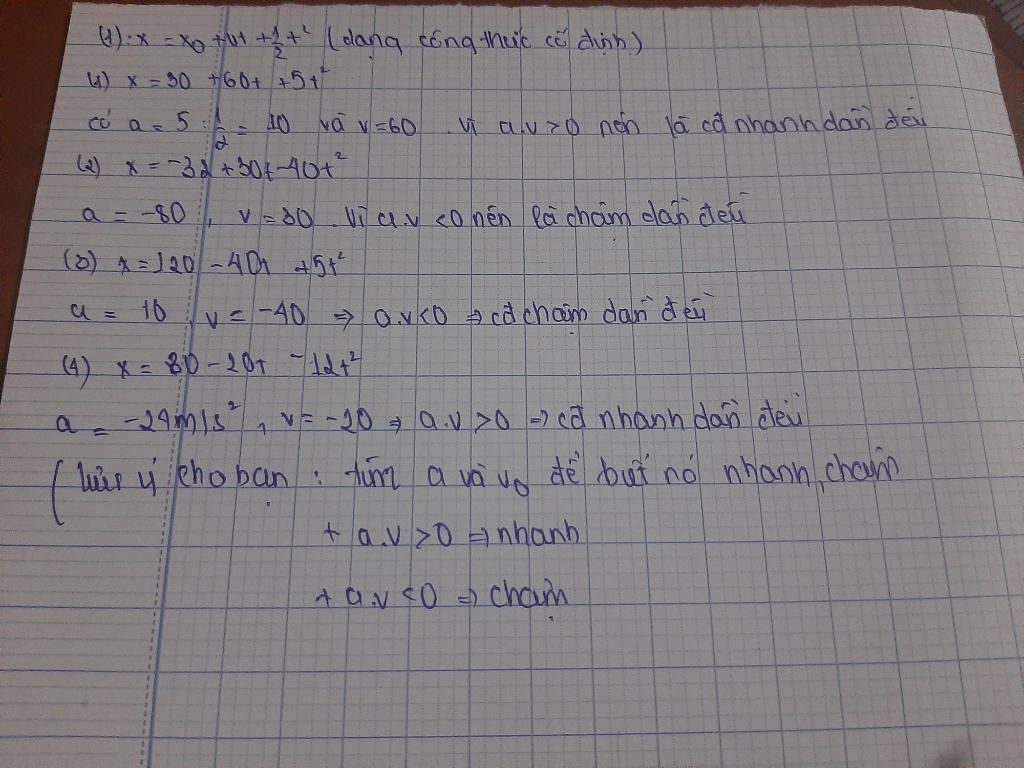 (1): x = x₀ + vt + 1/2 t² (dạng công thức cố định)
(1) x = 30 + 60t + 5t²
có a = 5 : 1/2 = 10 và v = 60 . Vì a.v > 0 nên là cđ nhanh dần đều
(2) x = -32 + 30t - 40t²
a = -80 , v = 30 . Vì a.v < 0 nên là chậm dần đều
(3) x = 120 - 40t + 5t²
a = 10 , v = -40 ⇒ a.v < 0 ⇒ cđ chậm dần đều
(4) x = 80 - 20t - 12t²
a = -24m/s² , v = -20 ⇒ a.v > 0 ⇒ cđ nhanh dần đều
( lưu ý cho bạn : tìm a và v₀ để biết nó nhanh, chậm
+ a.v > 0 ⇒ nhanh
+ a.v < 0 ⇒ chậm